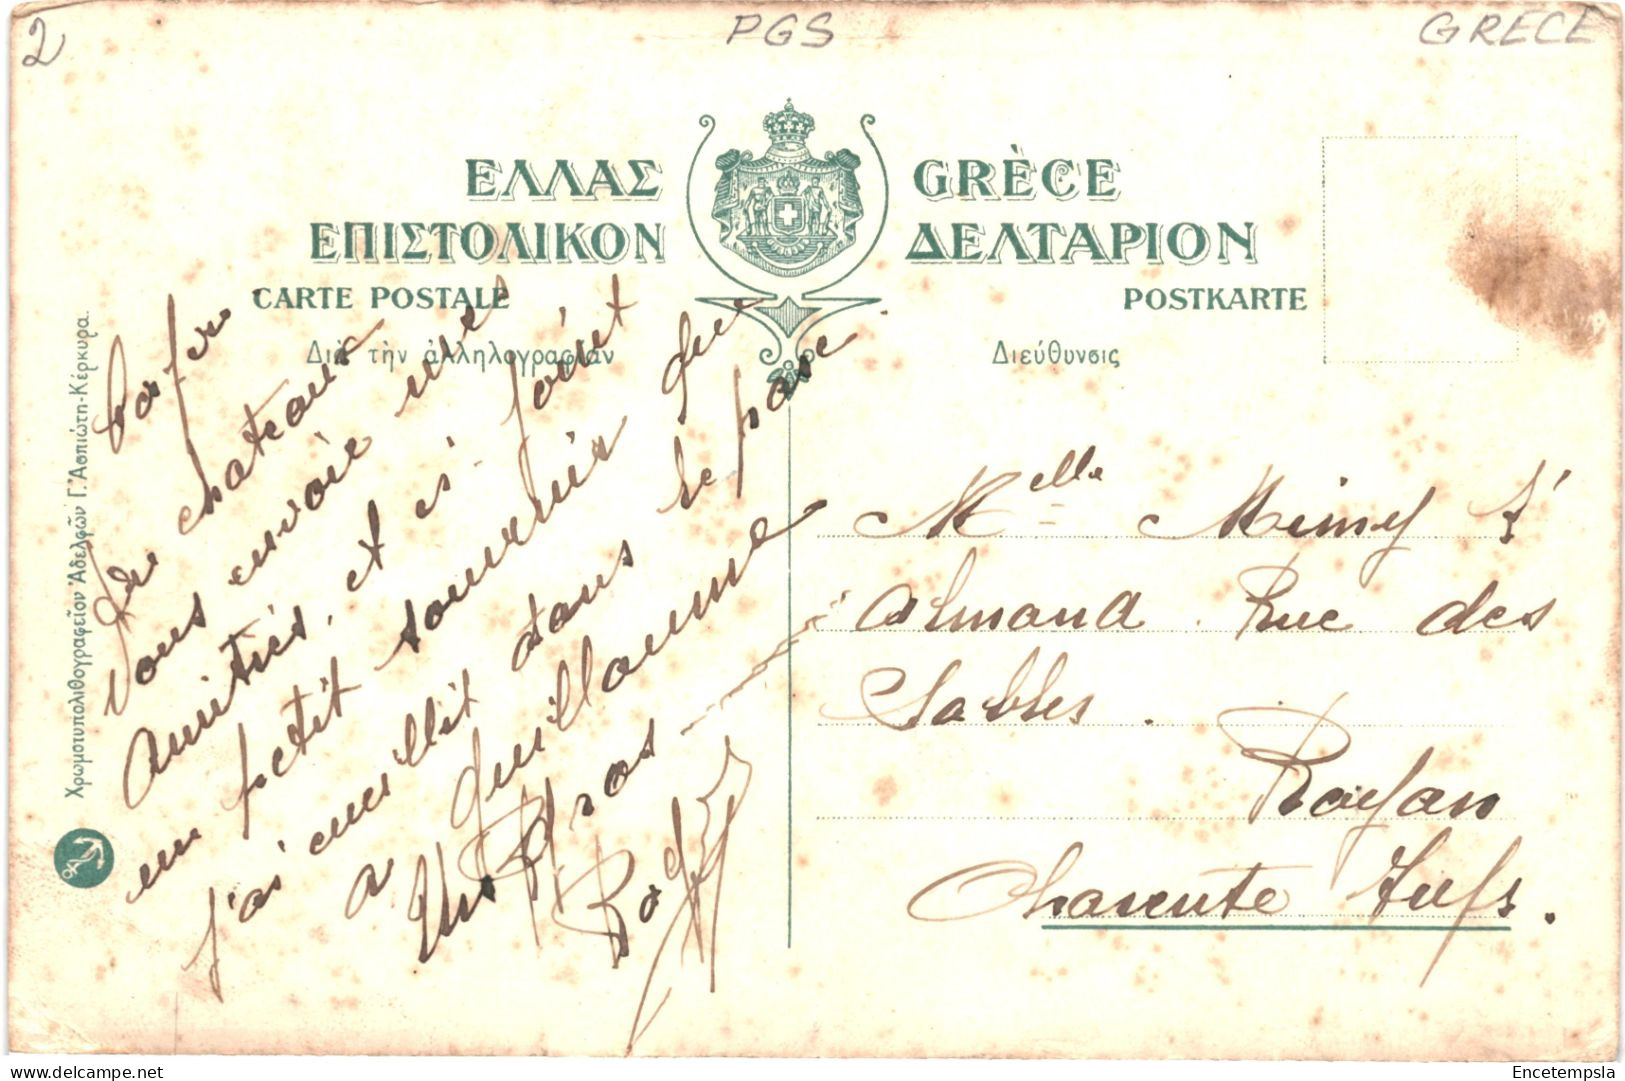 2
PGS
GRECE
ΕΛΛΑΣ GRÈCE
ΕΠΙΣΤΟΛΙΚΟΝ ΔΕΛΤΑΡΙΟΝ
CARTE POSTALE POSTKARTE
Διὰ τὴν ἀλληλογραφίαν Διεύθυνσις
Χρωμοτυπολιθογραφεῖον Ἀδελφῶν Γ. Ἀσπιώτη-Κέρκυρα.
Corfou
Du chateau
vous envoie une
amitiés, et ci-joint
un petit souvenir que
j'ai cueillit dans le parc
a Guillaume
Un Gros
Melle Mimy S
Almand. Rue des
Sables.
Royan
Charente Infs.
Encetempsla